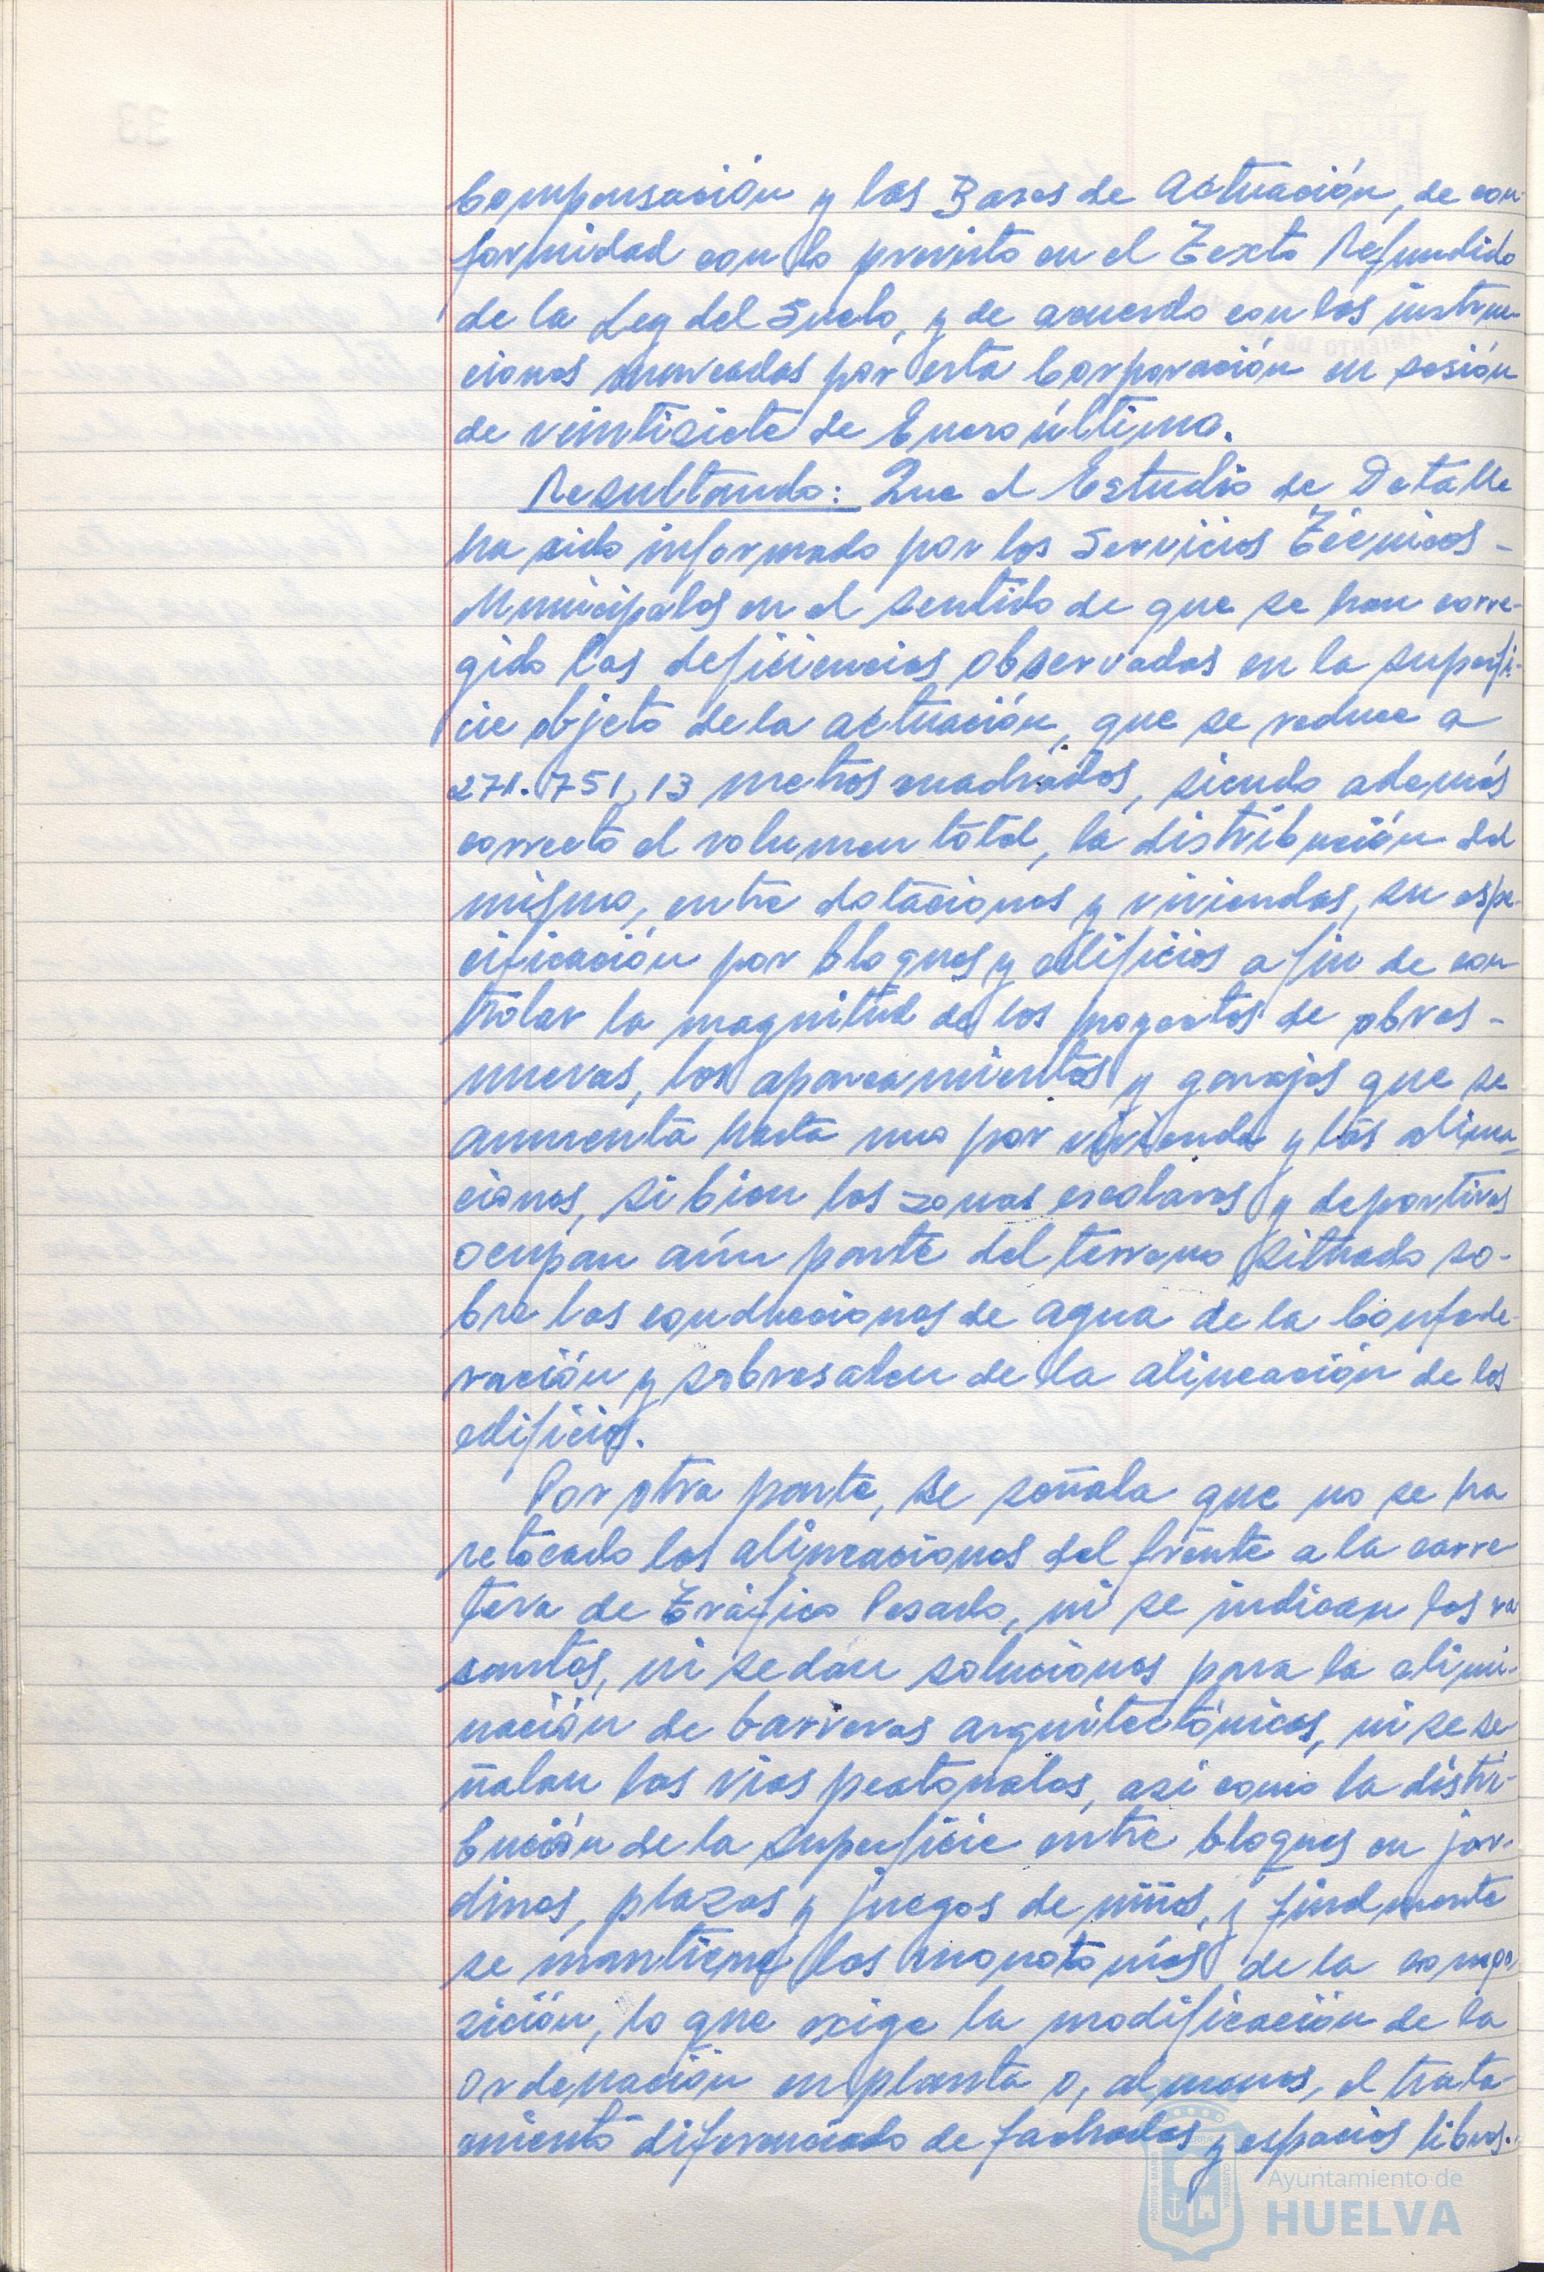 Compensación y las Bases de Actuación, de con-
formidad con lo previsto en el Texto Refundido
de la Ley del Suelo, y de acuerdo con las instruc-
ciones marcadas por esta Corporación en sesión
de veintisiete de Enero último.
Resultando: Que el Estudio de Detalle
ha sido informado por los Servicios Técnicos -
Municipales en el sentido de que se han corre-
gido las deficiencias observadas en la superfi-
cie objeto de la actuación, que se reduce a
271.751,13 metros cuadrados, siendo además
correcto el volumen total, la distribución del
mismo, entre dotaciones y viviendas, su espe-
cificación por bloques y edificios a fin de con
trolar la magnitud de los proyectos de obras -
nuevas, los aparcamientos y garajes que se
aumenta hasta uno por vivienda y las alinea-
ciones, si bien las zonas escolares y deportivas
ocupan aún parte del terreno situado so-
bre las conducciones de agua de la Confede-
ración y sobresalen de la alineación de los
edificios.
Por otra parte, se señala que no se ha
retocado las alineaciones del frente a la carre
tera de Tráfico Pesado, ni se indican las ra
santes, ni se dan soluciones para la elimi-
nación de barreras arquitectónicas, ni se se-
ñalan las vías peatonales, así como la distri-
bución de la superficie entre bloques en jar-
dines, plazas y juegos de niños, y finalmente
se mantiene las monotonías de la compo-
sición, lo que exige la modificación de la
ordenación en planta o, al menos, el trata-
miento diferenciado de fachadas y espacios libres.
Ayuntamiento de
HUELVA